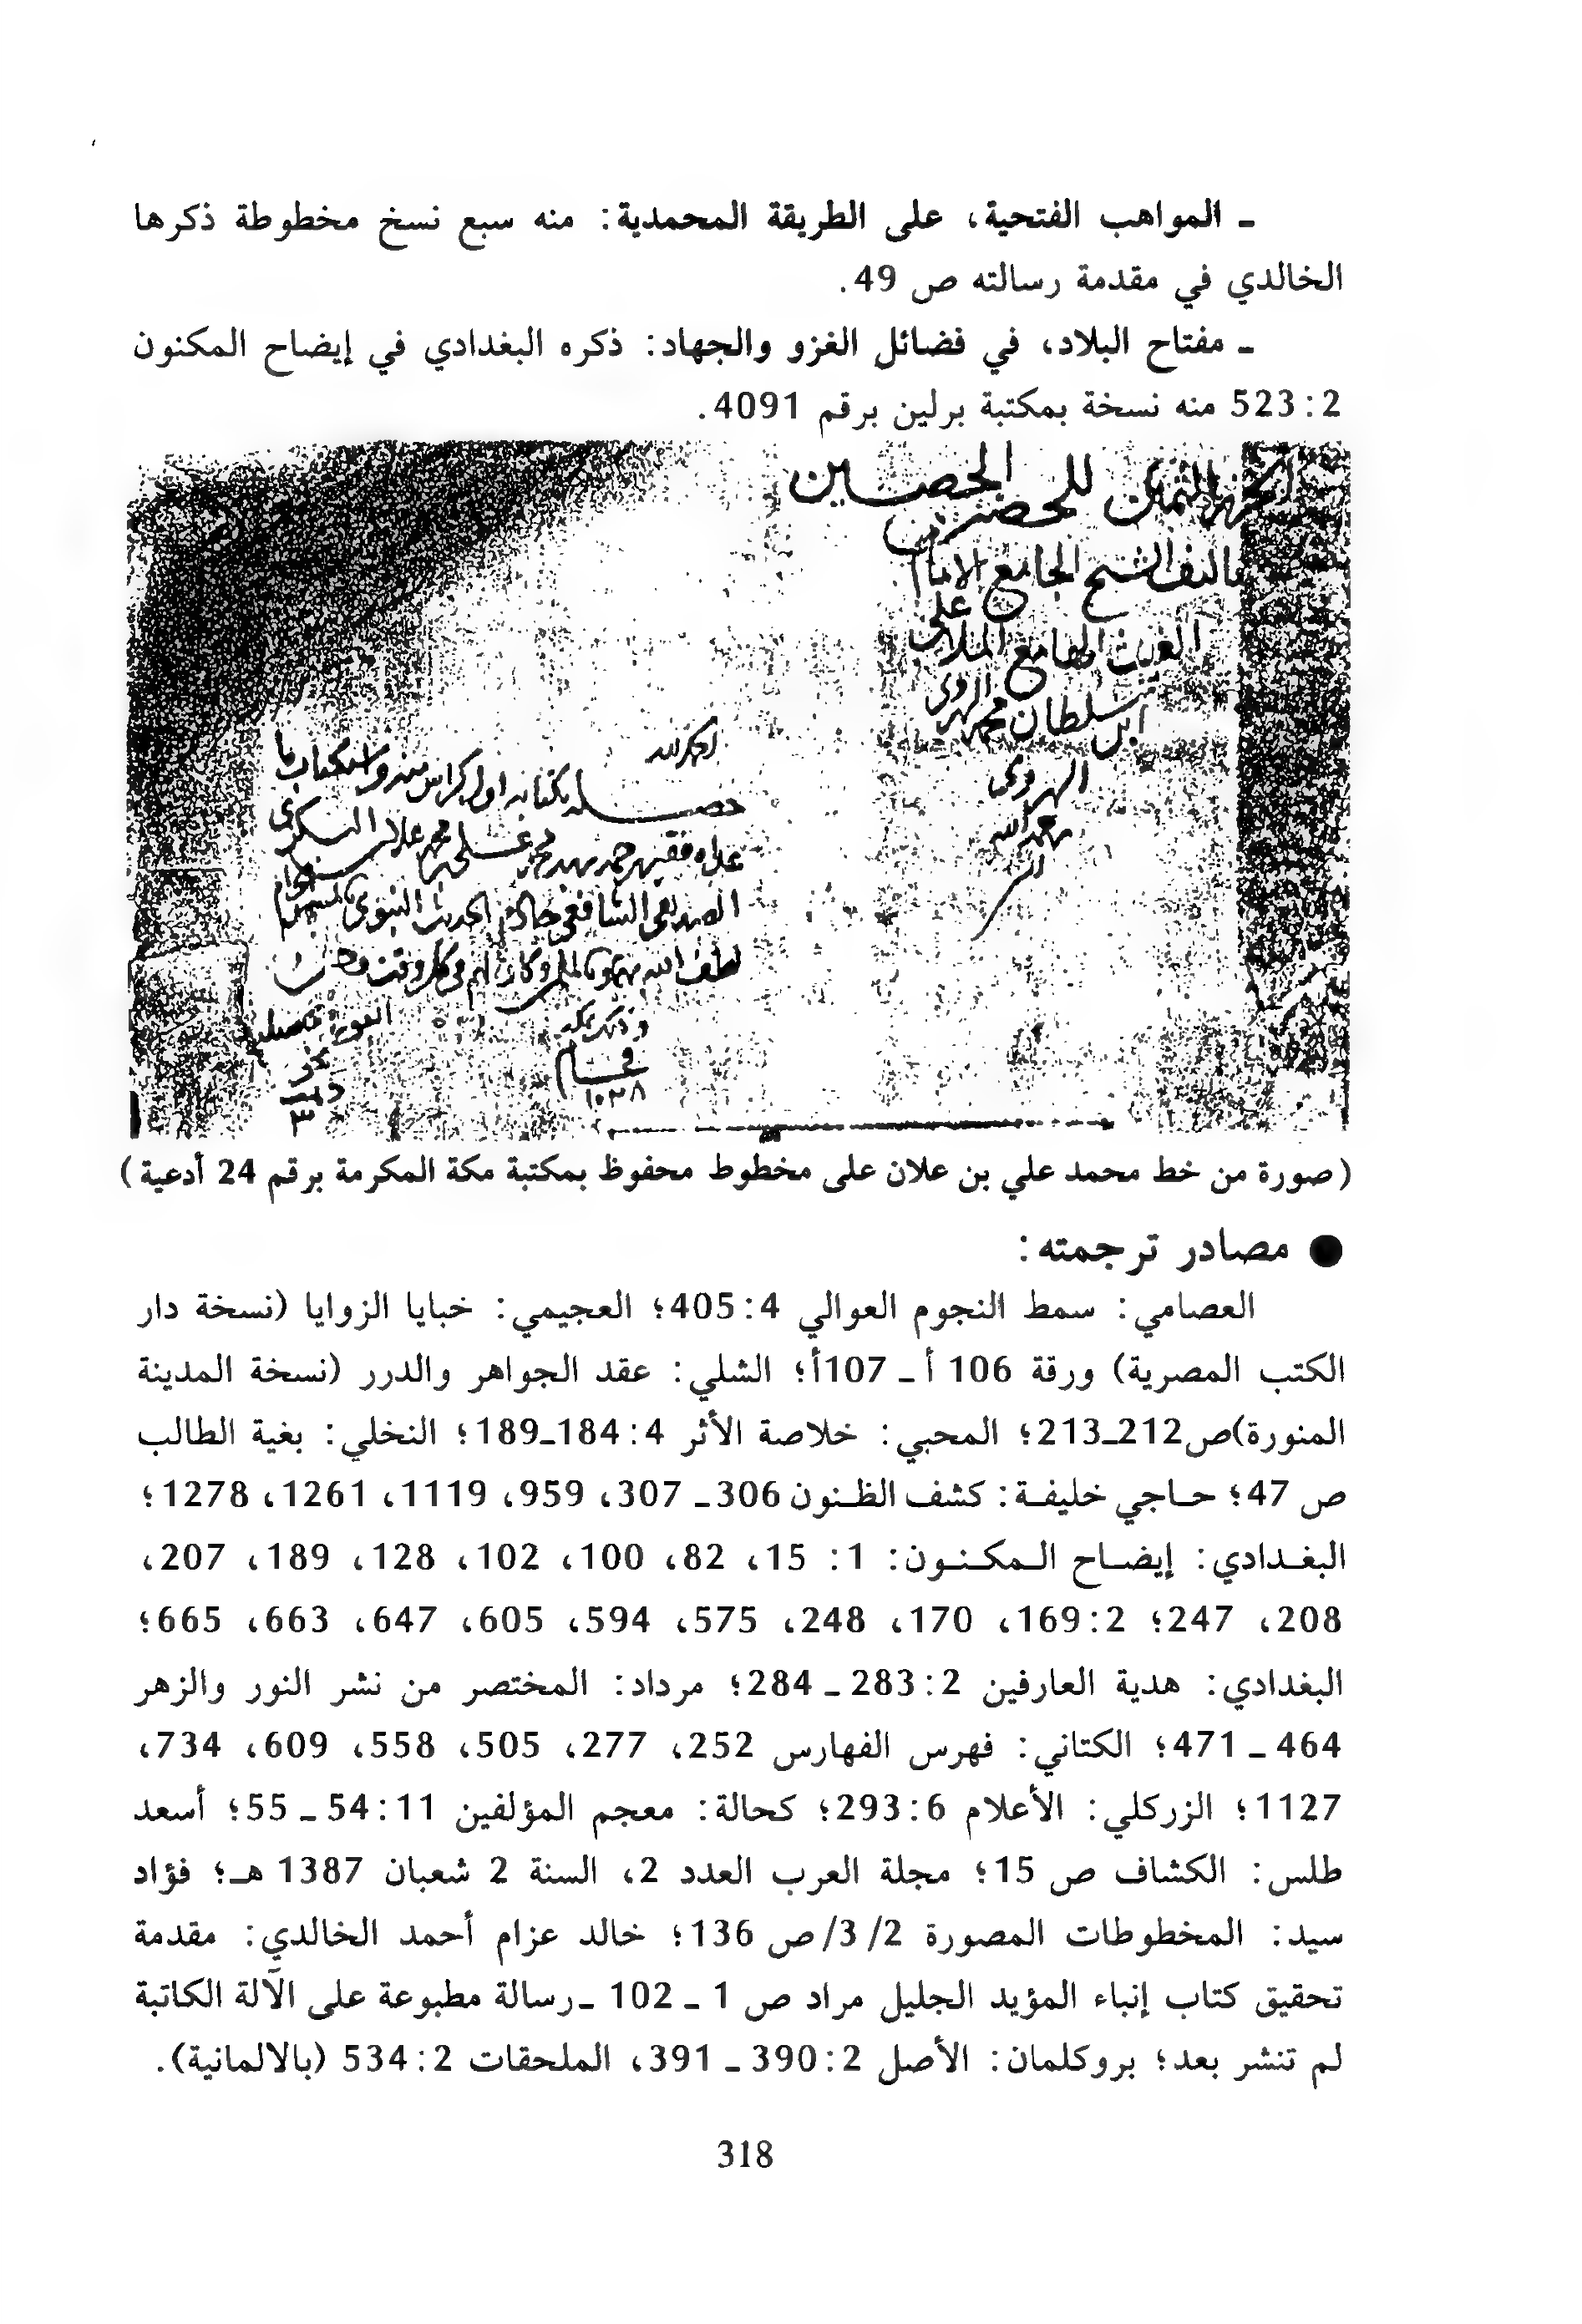 ـ المواهب الفتحية، على الطريقة المحمدية: منه سبع نسخ مخطوطة ذكرها
الخالدي في مقدمة رسالته ص 49.
ـ مفتاح البلاد، في فضائل الغزو والجهاد: ذكره البغدادي في إيضاح المكنون
2:523 منه نسخة بمكتبة برلين برقم 4091.
الحرز الثمين للحصن الحصين
تاليف الشيخ الجامع الامام
الملا على
ابن سلطان محمد الهروى
الهروى
رحمه الله
الحمد لله
الصديقى الشافعى خادم الحديث النبوى
لطف الله
١٠٣٨
٣
(صورة من خط محمد علي بن علان على مخطوط محفوظ بمكتبة مكة المكرمة برقم 24 أدعية)
● مصادر ترجمته:
العصامي: سمط النجوم العوالي 4:405؛ العجيمي: خبايا الزوايا (نسخة دار
الكتب المصرية) ورقة 106 أ ـ 107أ؛ الشلي: عقد الجواهر والدرر (نسخة المدينة
المنورة)ص212ـ213؛ المحبي: خلاصة الأثر 4:184ـ189؛ النخلي: بغية الطالب
ص 47؛ حـاجي خليفـة: كشف الظـنون 306 ـ 307، 959، 1119، 1261، 1278؛
البغـدادي: إيضـاح الـمكـنـون: 1: 15، 82، 100، 102، 128، 189، 207،
208، 247؛ 2:169، 170، 248، 575، 594، 605، 647، 663، 665؛
البغدادي: هدية العارفين 2:283 ـ 284؛ مرداد: المختصر من نشر النور والزهر
464 ـ 471؛ الكتاني: فهرس الفهارس 252، 277، 505، 558، 609، 734،
1127؛ الزركلي: الأعلام 6:293؛ كحالة: معجم المؤلفين 11:54 ـ 55؛ أسعد
طلس: الكشاف ص 15؛ مجلة العرب العدد 2، السنة 2 شعبان 1387 هـ؛ فؤاد
سيد: المخطوطات المصورة 2/ 3/ص 136؛ خالد عزام أحمد الخالدي: مقدمة
تحقيق كتاب إنباء المؤيد الجليل مراد ص 1 ـ 102 ـ رسالة مطبوعة على الآلة الكاتبة
لم تنشر بعد؛ بروكلمان: الأصل 2:390 ـ 391، الملحقات 2:534 (بالالمانية).
318